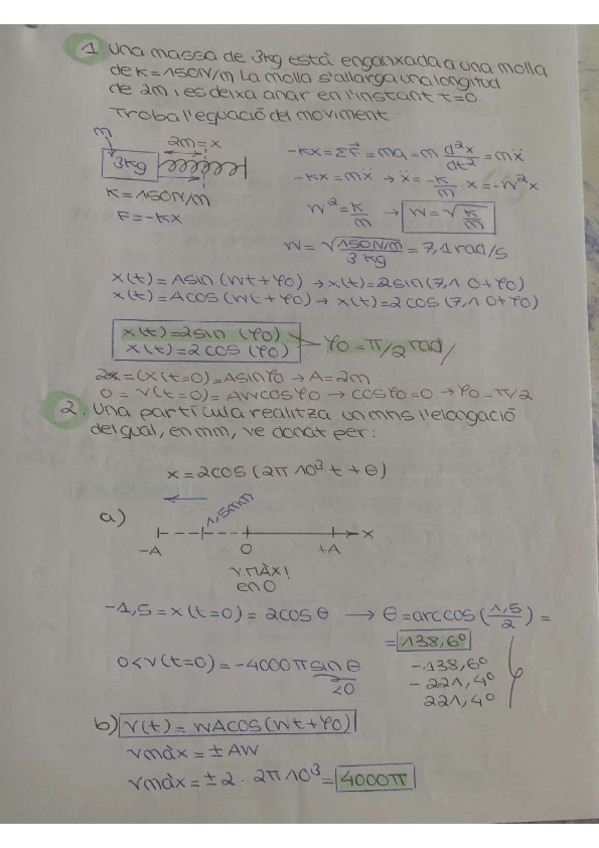 1. Una massa de 3kg està enganxada a una molla
de K=150N/m La molla s'allarga una longitud
de 2m i es deixa anar en l'instant t=0.
Troba l'equació del moviment
m
3kg
2m=x
K=150N/m
F=-Kx
-Kx=ΣF⃗=ma=m d²x/dt²=mẍ
-Kx=mẍ → ẍ=-K/m·x=-w²x
w²=K/m → w=√K/m
w=√150N/m/3kg=7,1rad/s
x(t)=Asin(wt+φ0)→x(t)=2sin(7,1·0+φ0)
x(t)=Acos(wt+φ0)→x(t)=2cos(7,1·0+φ0)
x(t)=2sin(φ0)
x(t)=2cos(φ0)
φ0=π/2 rad/
=(x(t=0)=Asinφ0→A=2m
0=v(t=0)=Awcosφ0→cosφ0=0→φ0=π/2
2. Una partícula realitza un mhs l'elongació
del qual, en mm, ve donat per:
x=2cos(2π10³t+θ)
a)
1,5mm
-A
0
+A
x
v.MÀX!
en 0
-1,5=x(t=0)=2cosθ → θ=arccos(1,5/2)=
=138,6º
0<v(t=0)=-4000πsinθ
<0
-138,6º
-221,4º
221,4º
b) v(t)=wAcos(wt+φ0)
vmàx=±Aw
vmàx=±2·2π10³=4000π